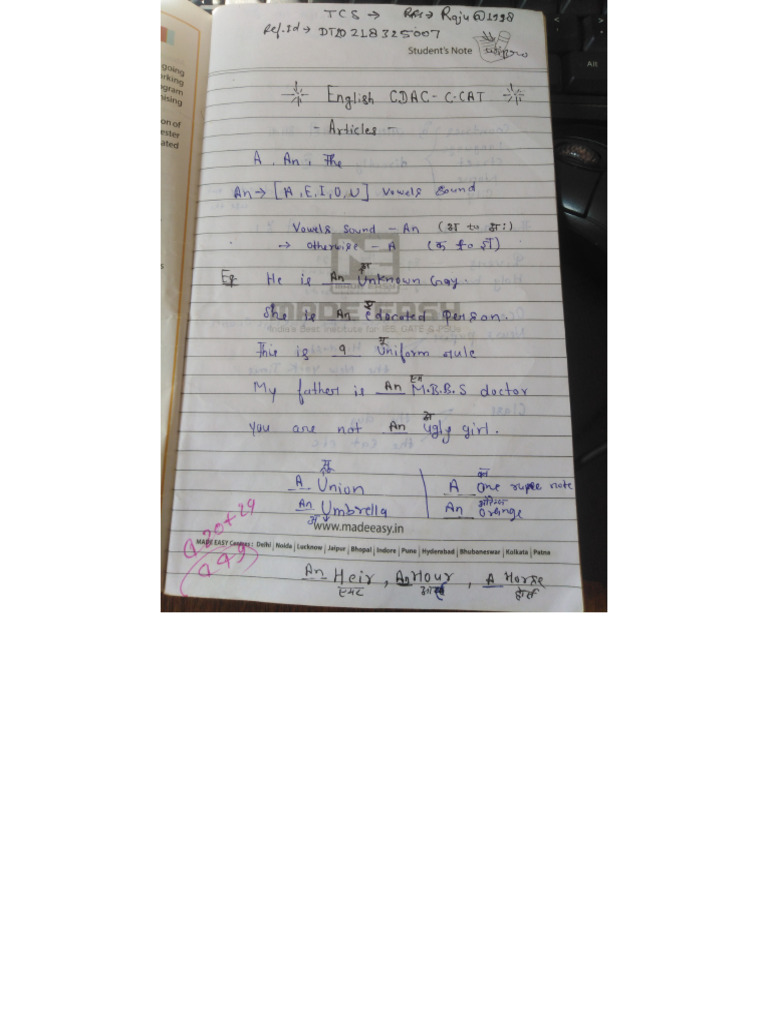 TCS → Raju@1998
Ref.Id → DT20218325007
Student's Note
English CDAC-C-CAT
- Articles -
A, An, The
An → [A,E,I,O,U] Vowels Sound
Vowels Sound - An (अ to अः)
→ Otherwise - A (क to ज्ञ)
MADE EASY
India's Best Institute for IES, GATE & PSUs
Eg He is An Unknown Guy.
अ
She is An Educated Person.
ए
This is a Uniform rule
यू
My father is An M.B.B.S doctor
एम
You are not An Ugly girl.
अ
यू
A Union
An Umbrella
अ
A One rupee note
An Orange
www.madeeasy.in
MADE EASY Centres : Delhi | Noida | Lucknow | Jaipur | Bhopal | Indore | Pune | Hyderabad | Bhubaneswar | Kolkata | Patna
Q 20+29
Q 49
An Heir, An Hour, A Horse
going
rking
ogram
nising
on of
ester
ated
Alt